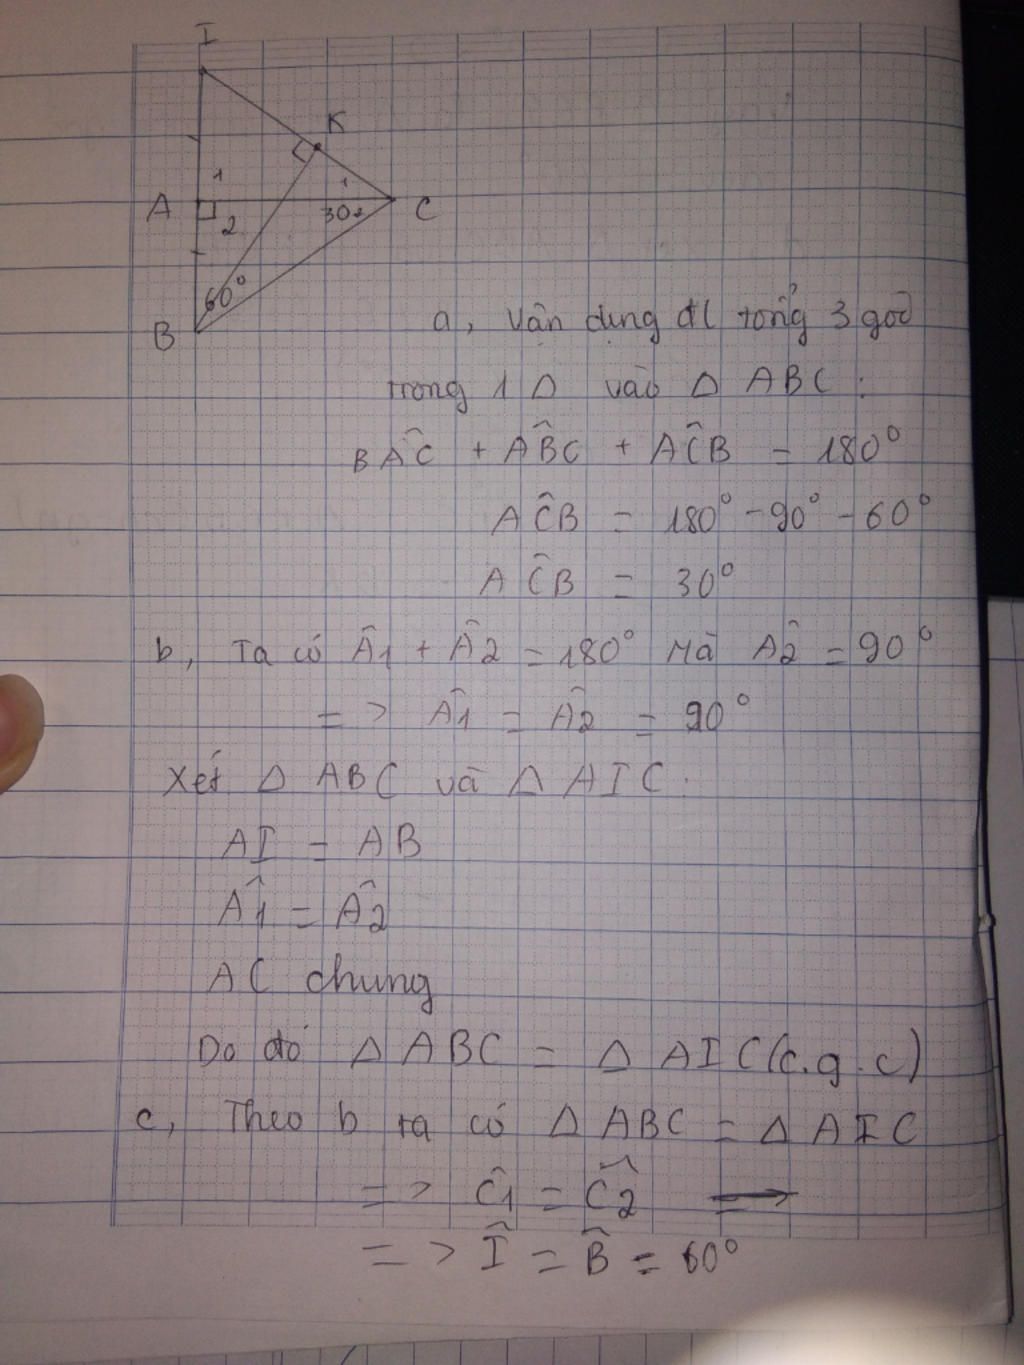 I
K
A
1
2
1
30 2
C
60°
B
a, Vân dụng đl tổng 3 goć
trong 1 Δ vào Δ ABC :
BÂC + AB̂C + AĈB = 180°
AĈB = 180° - 90° - 60°
AĈB = 30°
b, Ta có Â1 + Â2 = 180° Mà Â2 = 90°
=> Â1 = Â2 = 90°
Xét Δ ABC và Δ AIC :
AI = AB
Â1 = Â2
AC chung
Do đó Δ ABC = Δ AIC (c.g.c)
c, Theo b ta có Δ ABC = Δ AIC
=> Ĉ1 = Ĉ2
=> Î = B̂ = 60°